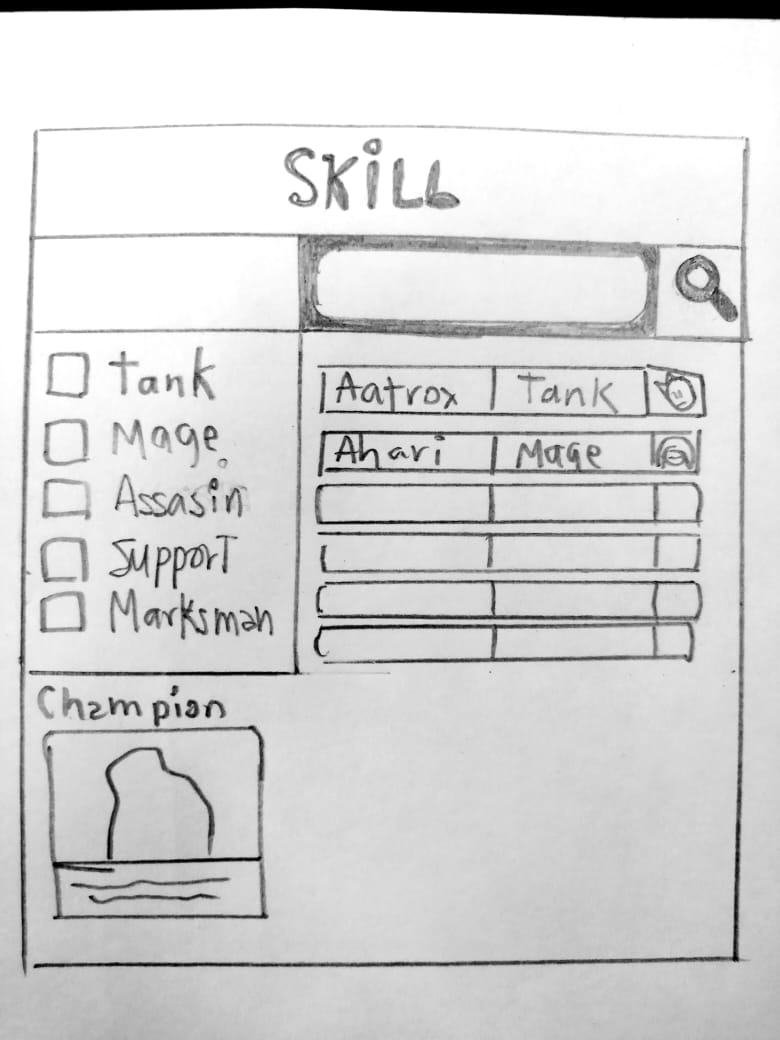 SKiLL
Tank
Mage
Assasin
Support
Marksman
Aatrox Tank
Ahari Mage
Champion